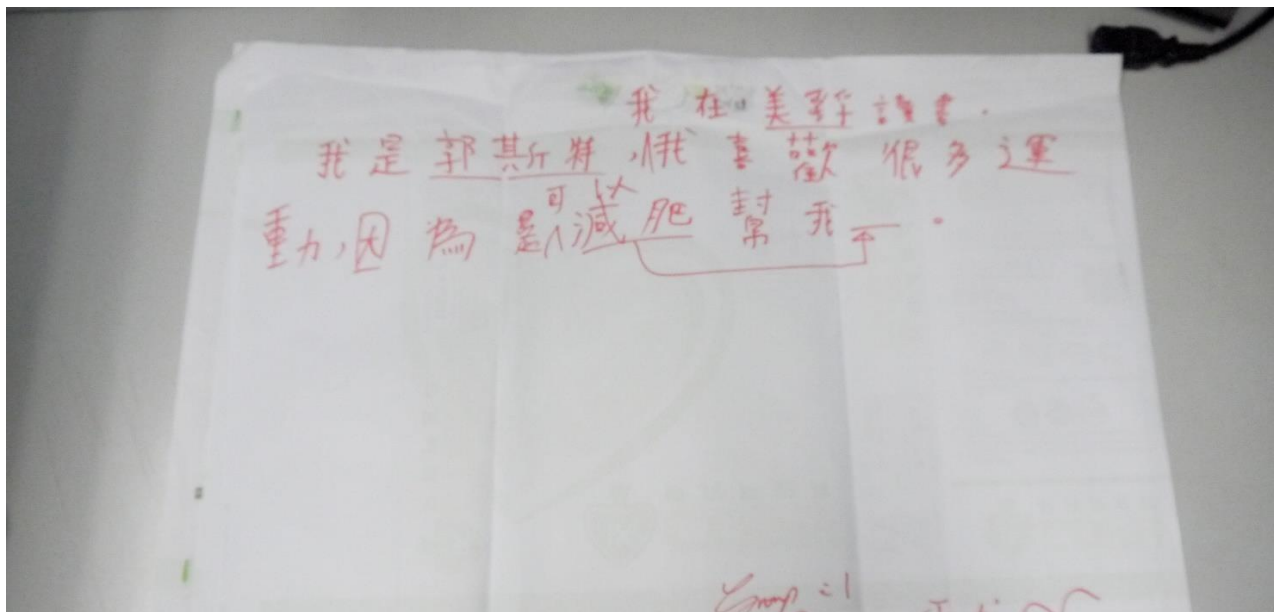 我在美孚讀書.
我是郭斯特,我喜歡很多運
可以
動,因為是減肥幫我 。
Group : 1